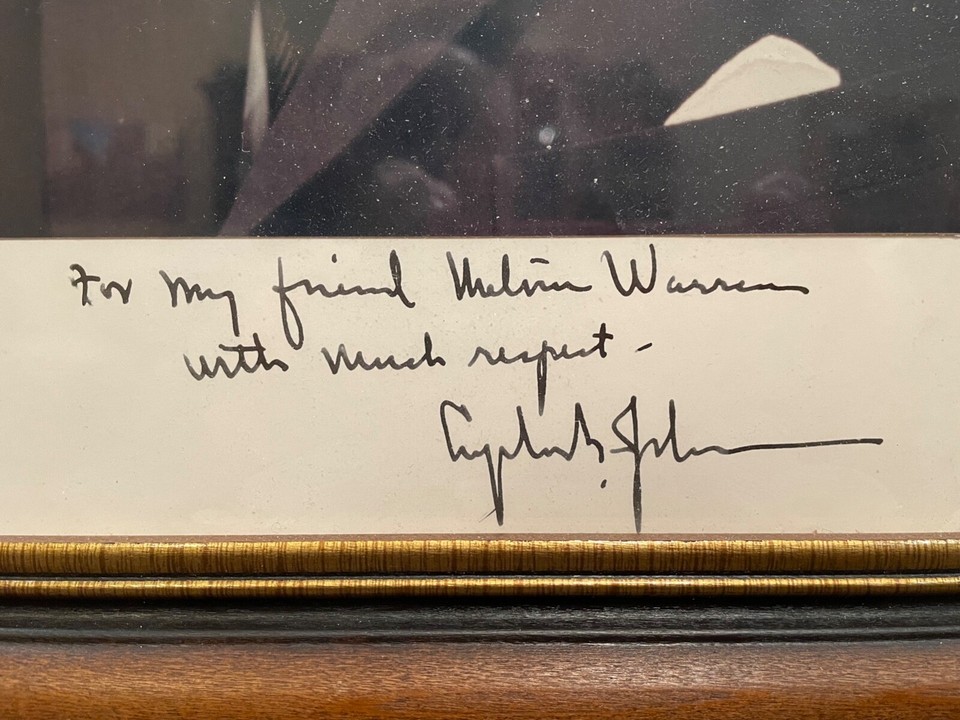 For my friend Melvin Warren
with much respect -
Lyndon B. Johnson